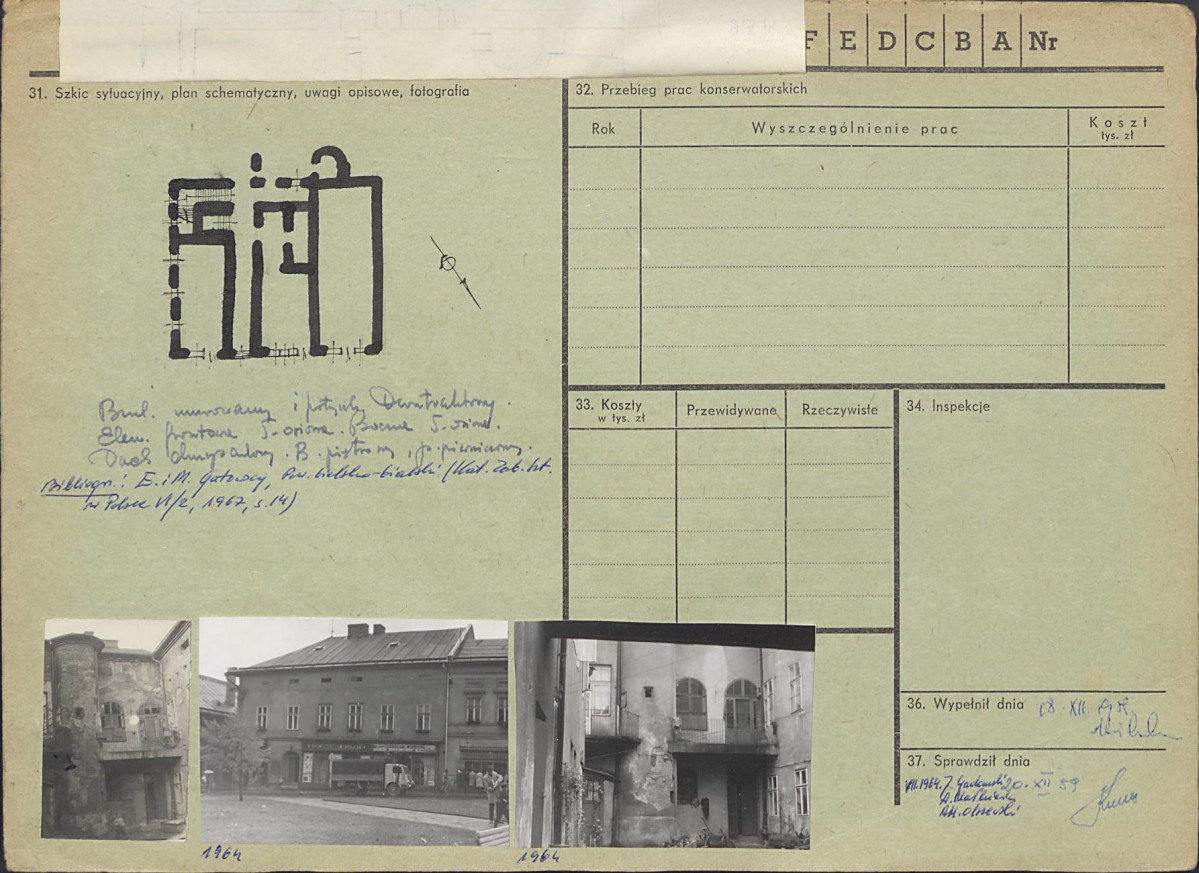 F E D C B A Nr
31. Szkic sytuacyjny, plan schematyczny, uwagi opisowe, fotografia
Bud. murowany i potynk. Dwutraktowy.
Elew. frontowa 5-osiowa. Boczna 5-osiowa.
Dach dwuspadowy. B. piętrowy, podpiwniczony.
Bibliogr.: E. i M. Gutowscy, Pow. bielsko-bialski (Kat. Zab. Szt.
w Polsce VI/2, 1967, s. 14)
1964
1964
32. Przebieg prac konserwatorskich
Rok Wyszczególnienie prac Koszt
tys. zł
33. Koszty
w tys. zł
Przewidywane Rzeczywiste
34. Inspekcje
36. Wypełnił dnia
37. Sprawdził dnia
VII.1964. J. 20. XII 59